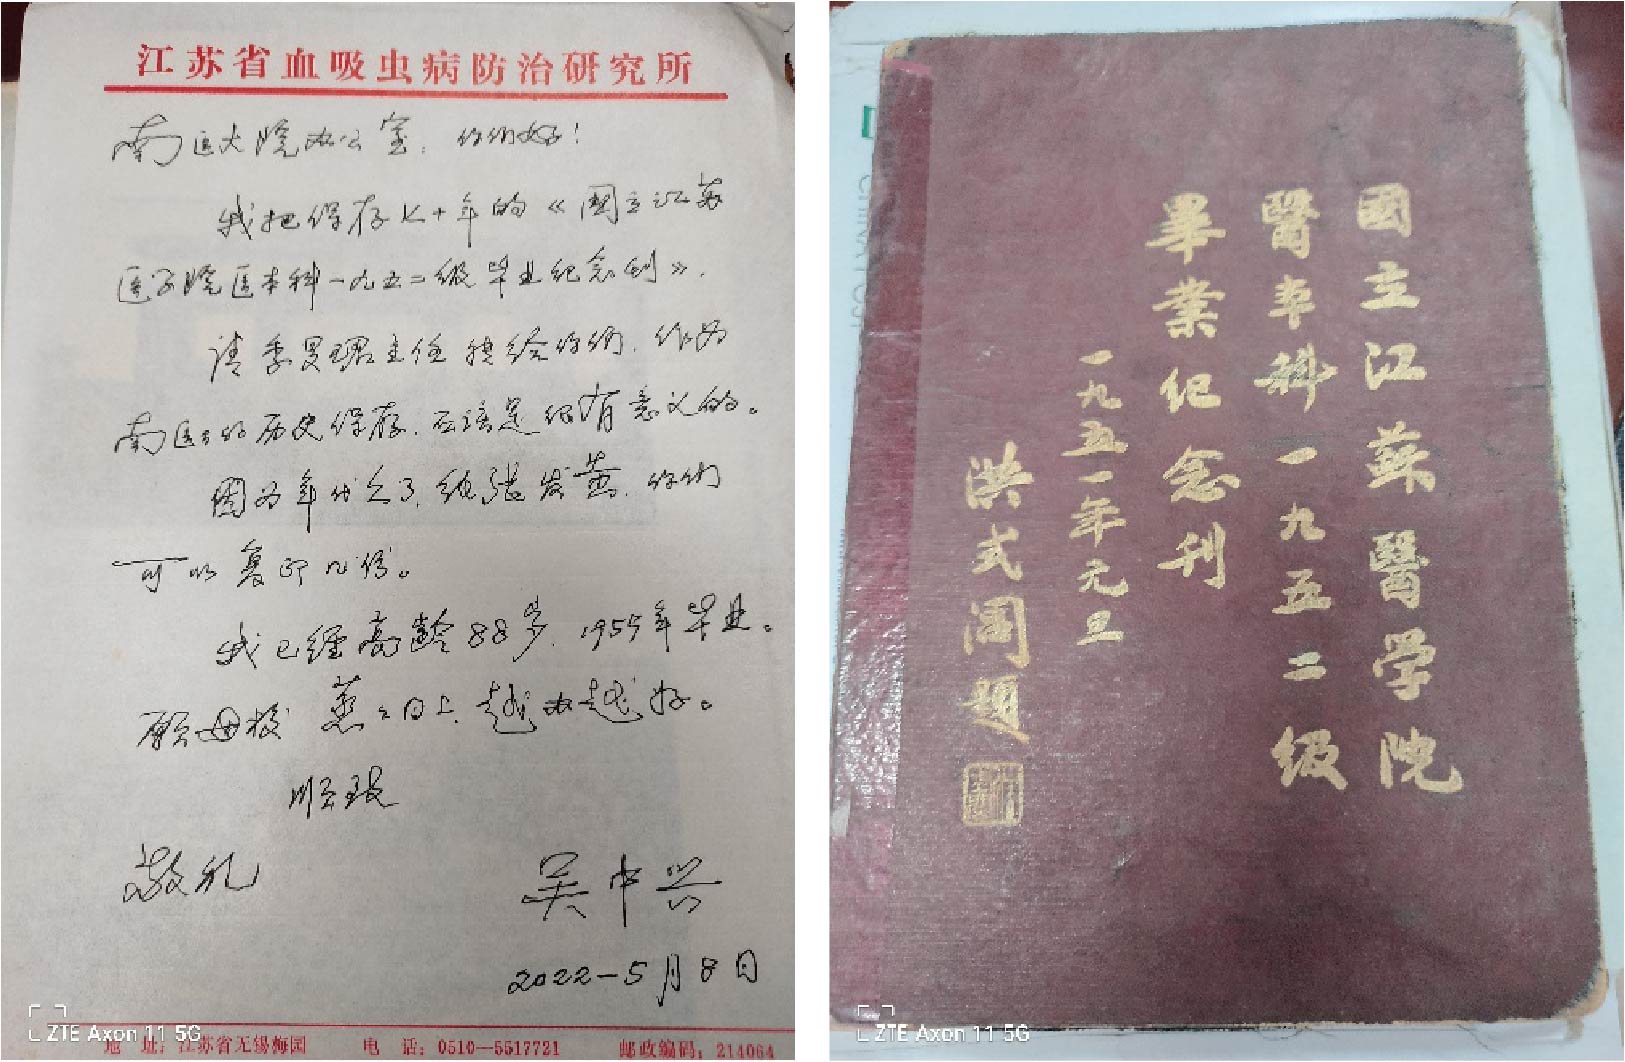 江苏省血吸虫病防治研究所
南医大院办公室：你们好！
我把保存七十年的《国立江苏
医学院医本科一九五二级毕业纪念刊》，
请季旻珺主任转给你们，作为
南医大的历史保存，应该是很有意义的。
因为年代久了，纸张发黄，你们
可以复印几份。
我已经高龄88岁，1955年毕业。
愿母校蒸蒸日上，越办越好。
顺致
敬礼
吴中兴
2022-5月8日
地 址：江苏省无锡梅园 电 话：0510—5517721 邮政编码：214064
ZTE Axon 11 5G
國立江蘇醫学院
醫本科一九五二级
畢業纪念刊
一九五一年元旦
洪式閭題
ZTE Axon 11 5G